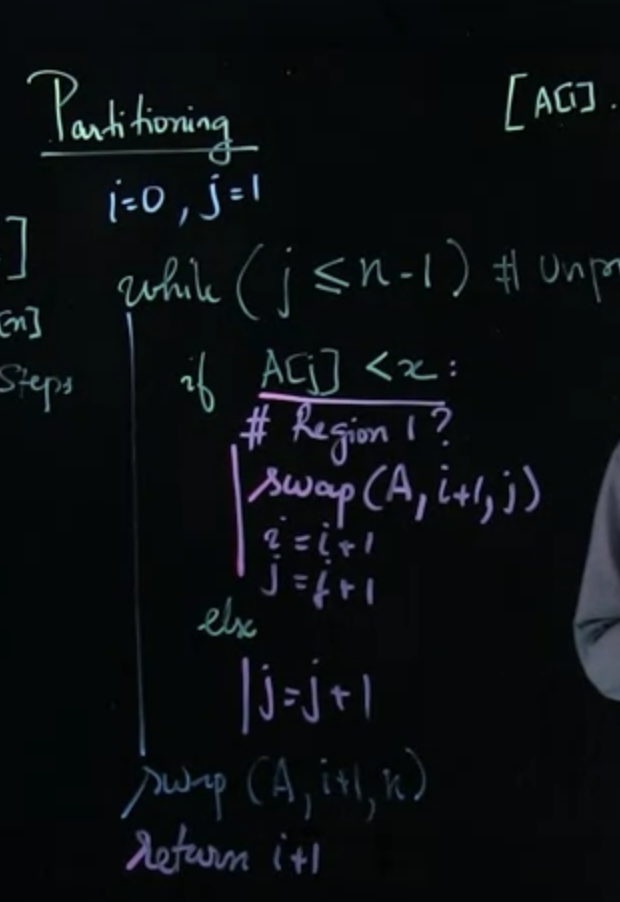 Partitioning
[A[1].
i=0, j=1
]
while (j ≤ n-1) #
[n]
Steps
if A[j] < x:
# Region 1?
swap(A, i+1, j)
i = i+1
j = j+1
else
j = j+1
swap (A, i+1, n)
return i+1